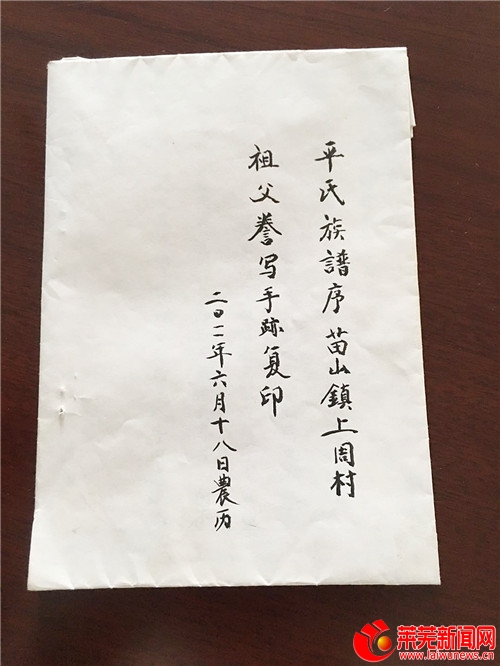 平氏族譜序苗山鎮上周村
祖父誊写手跡复印
二〇一一年六月十八日農历
莱芜新闻网
www.laiwunews.cn